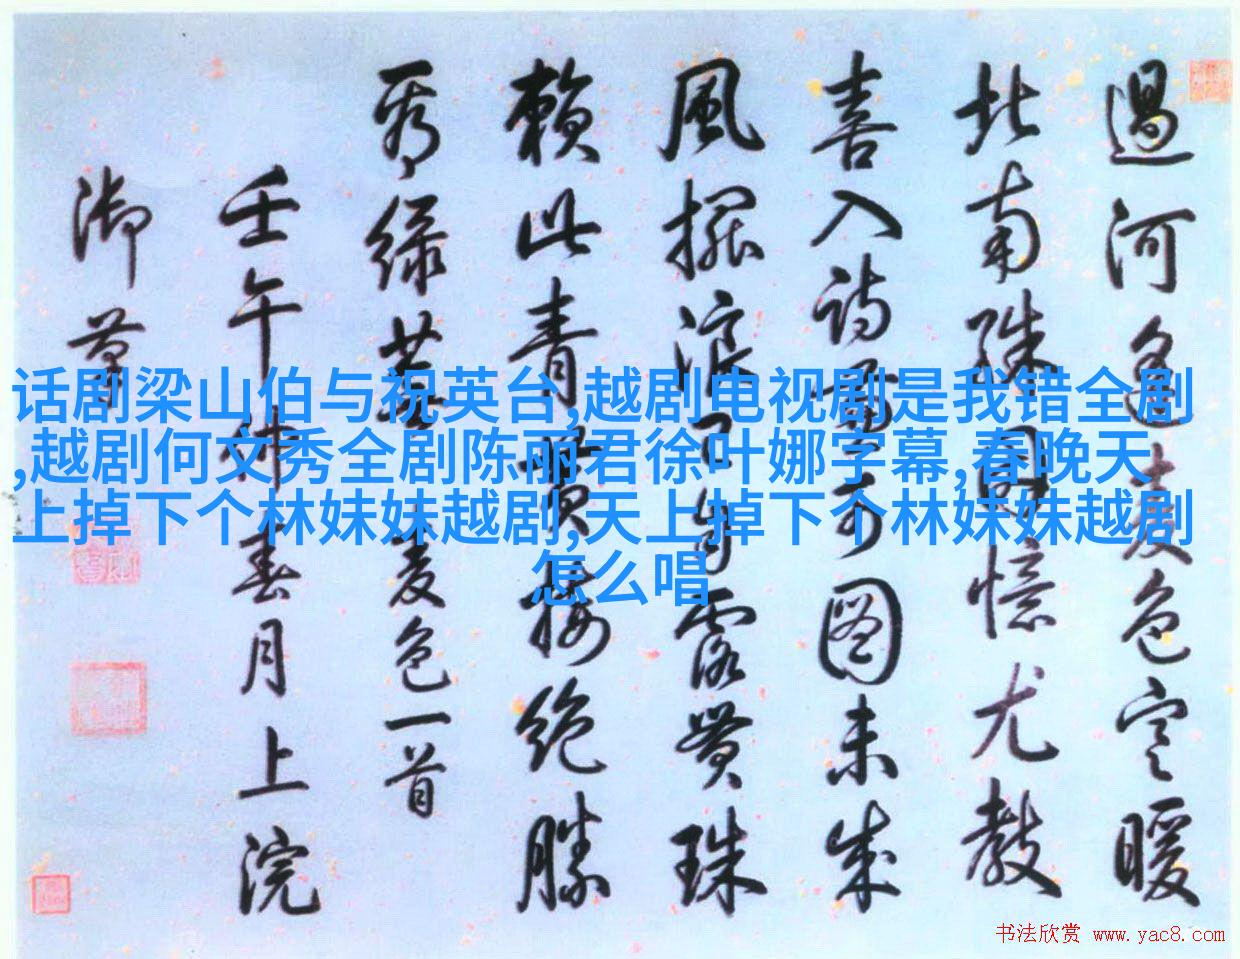 话剧梁山伯与祝英台,越剧电视剧是我错全剧
,越剧何文秀全剧陈丽君徐叶娜字幕,春晚天
上掉下个林妹妹越剧,天上掉下个林妹妹越剧
怎么唱
過河逢麦色寒暖
北南殊因憶尤教
喜入詩可图未成
風擺浪自露貫珠
賴此青黄接絶勝
秀緑蕪麦色一首
壬午仲春月上浣
御筆
书法欣赏 www.yac8.com